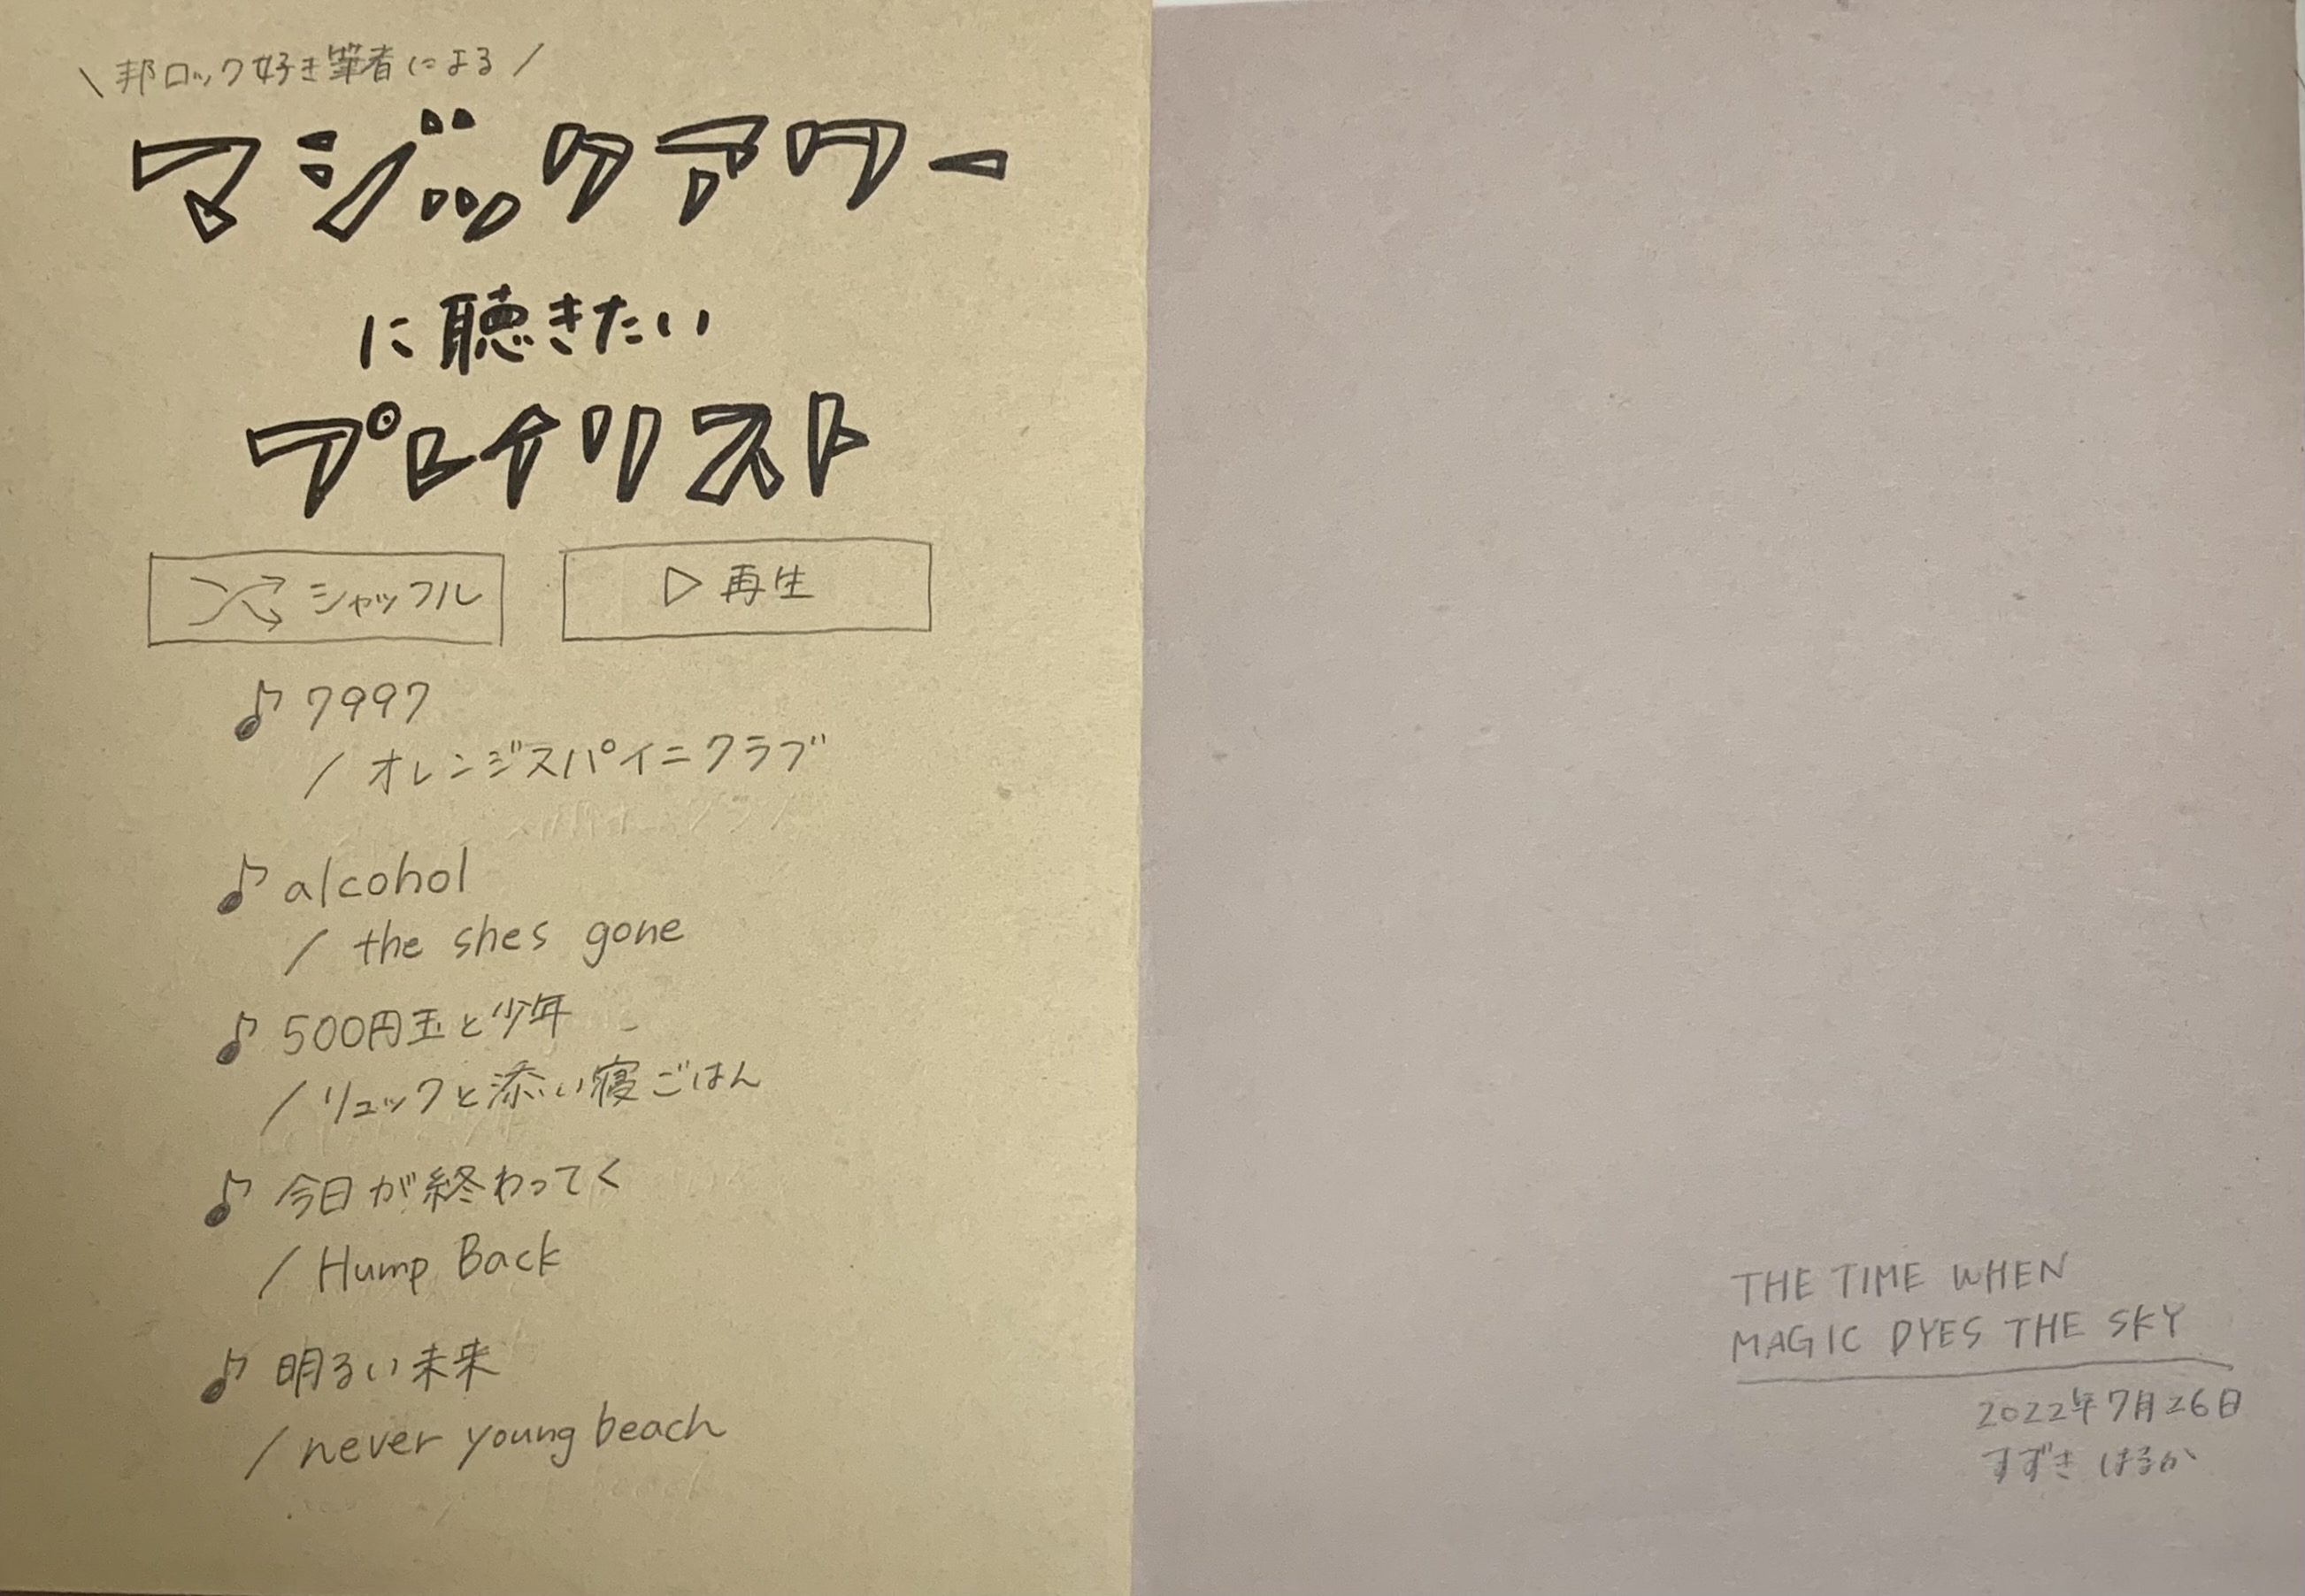 \ 邦ロック好き筆者による /
マジックアワー
に聴きたい
プレイリスト
シャッフル
▷ 再生
♪ 7997
/ オレンジスパイニクラブ
♪ alcohol
/ the shes gone
♪ 500円玉と少年
/ リュックと添い寝ごはん
♪ 今日が終わってく
/ Hump Back
♪ 明るい未来
/ never young beach
THE TIME WHEN
MAGIC DYES THE SKY
2022年7月26日
すずき はるか